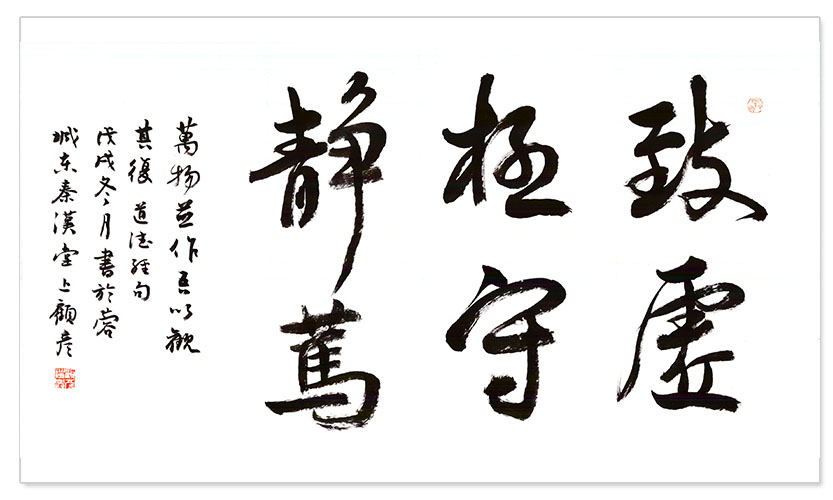 致虚
極守
静篤
萬物並作吾以觀
其復道德經句
戊戌冬月書於蓉
城東秦漢堂上顧彦